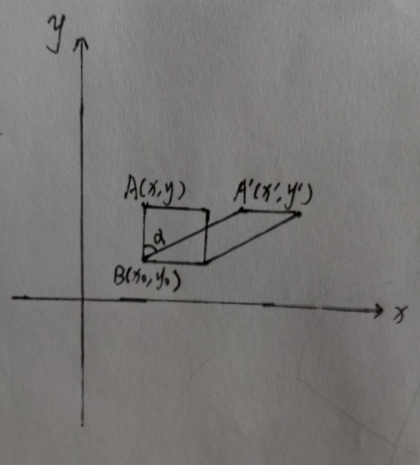 y
A(x,y) A'(x',y')
α
B(x₀,y₀)
x